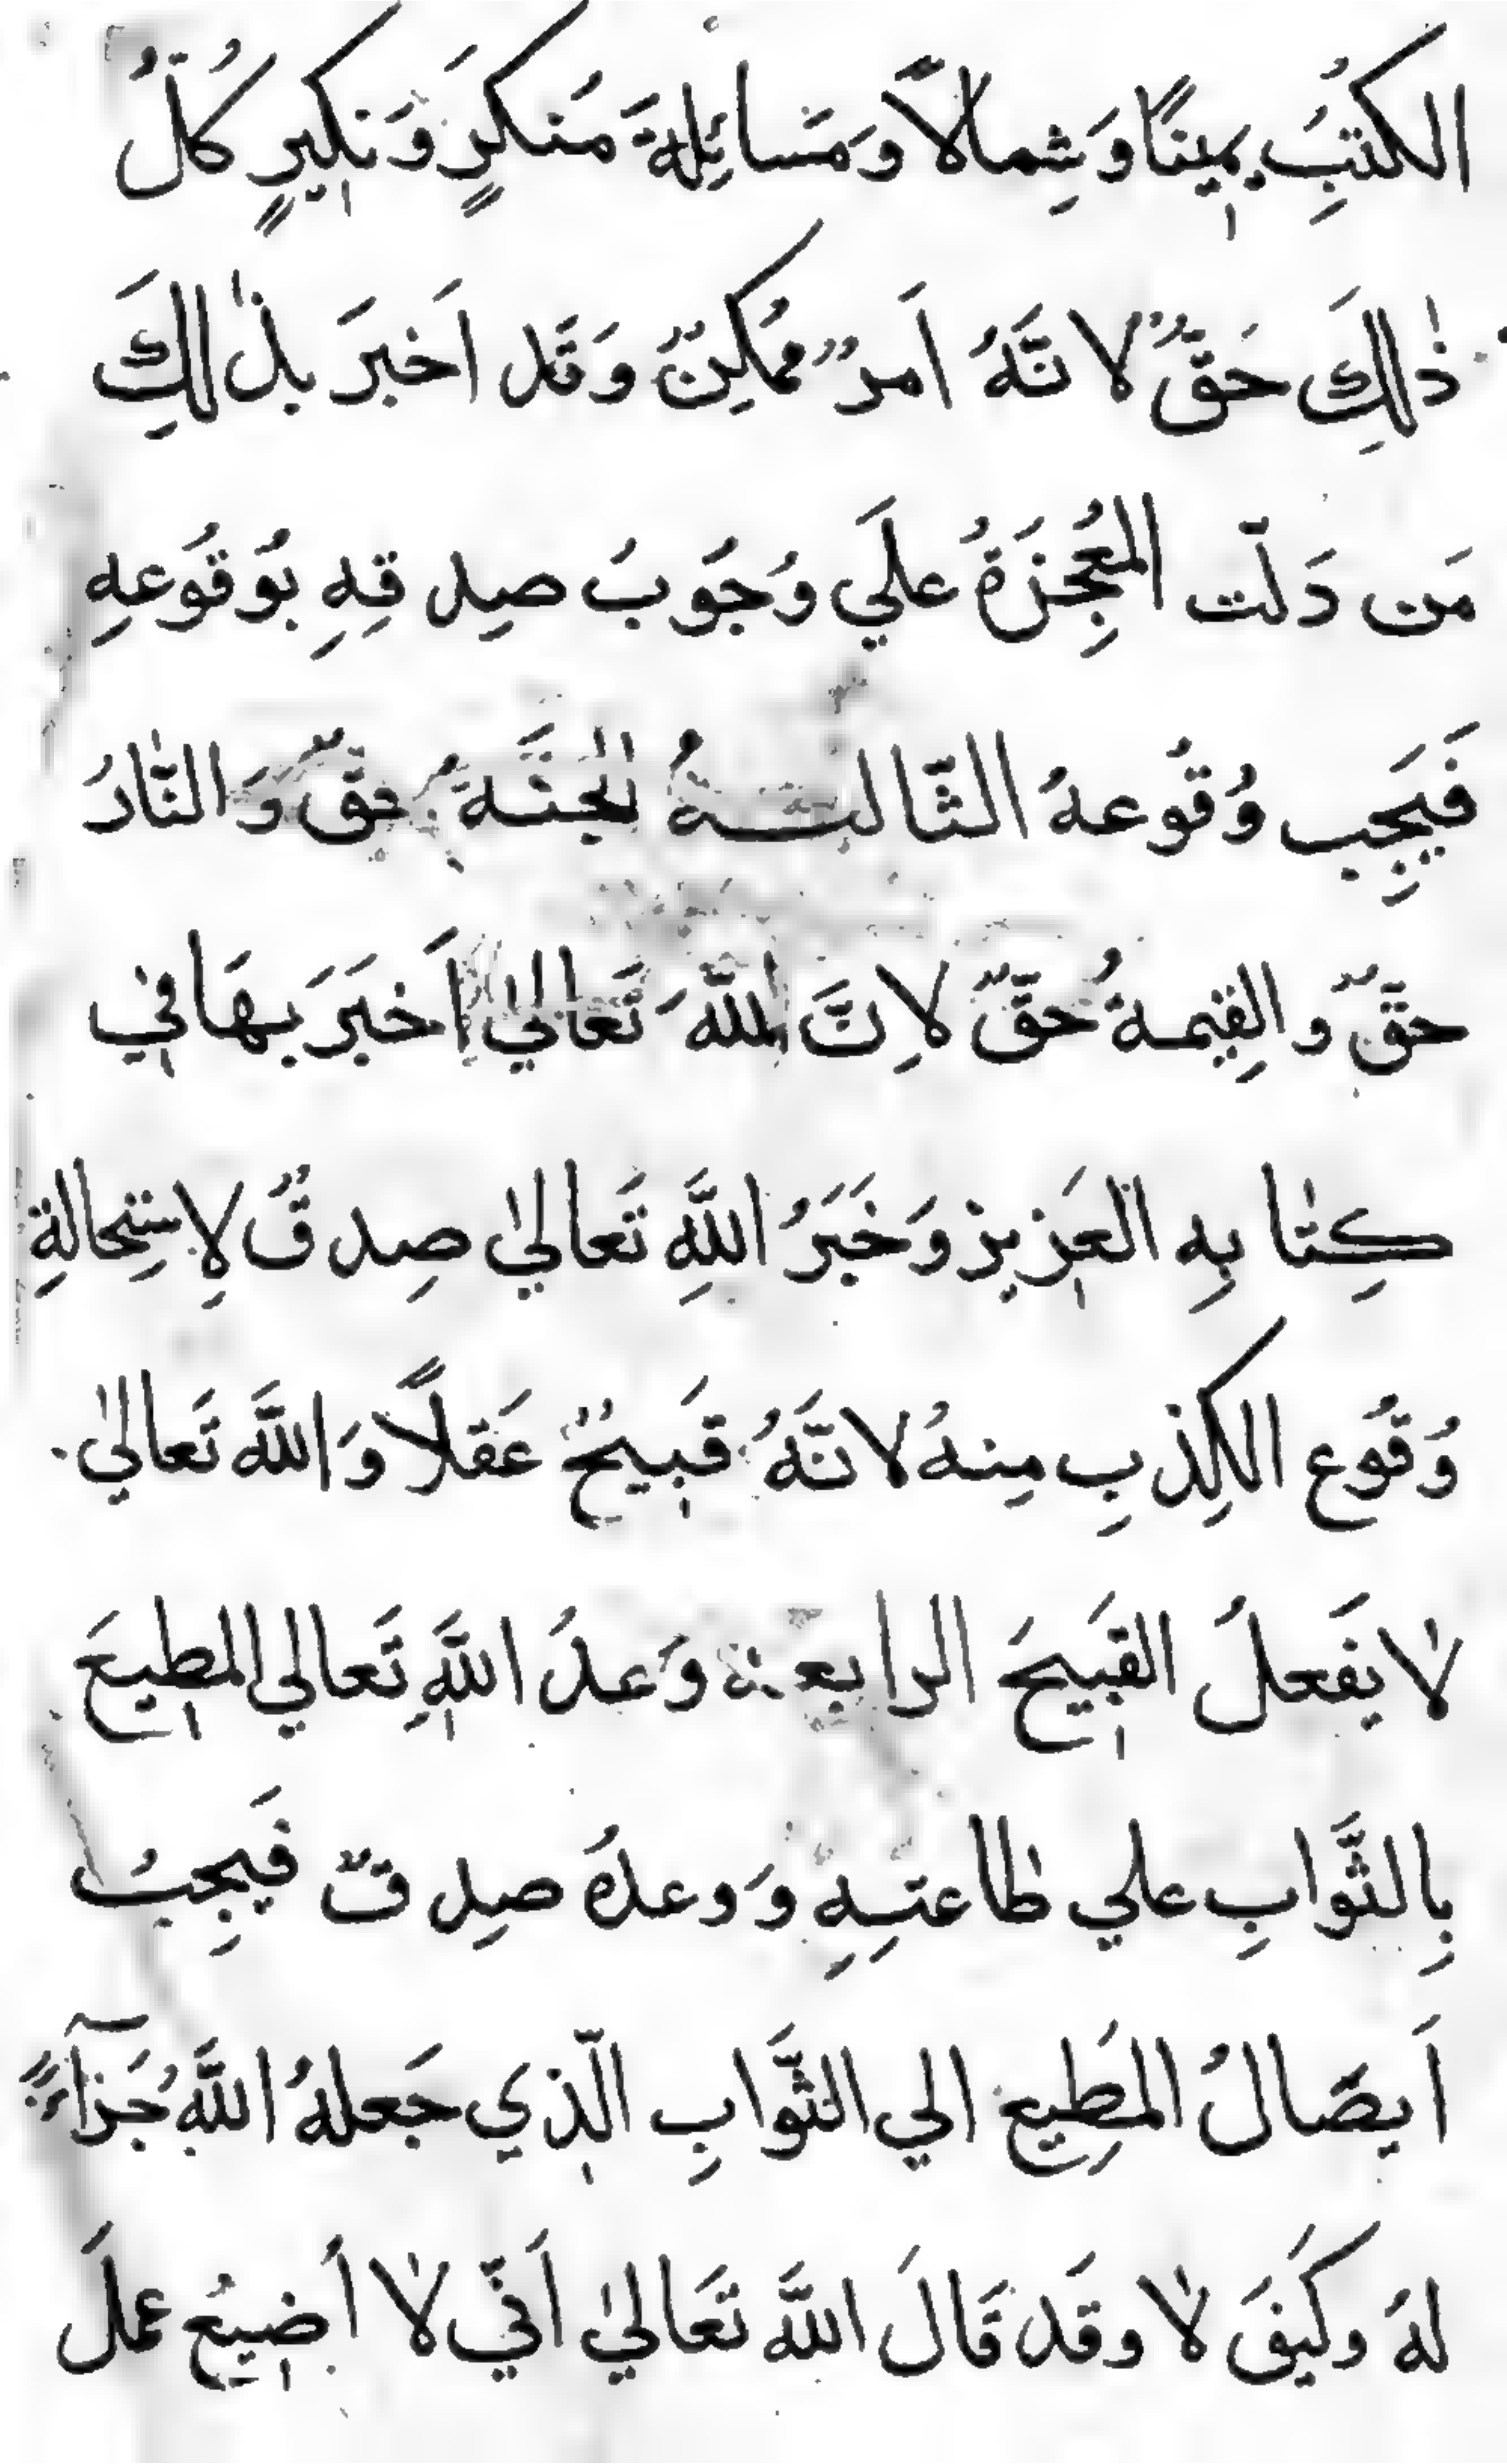 الكتبِ يمينًا وَشِمالاً وَمَسائِلةَ مَنكرٍ وَنكيرٍ كُلُّ
ذٰلِكَ حَقٌّ لانَّهُ اَمرٌ مُمكِنٌ وَقَد اَخبَرَ بذٰلِكَ
مَن دَلّت المعُجِزَةُ علَي وُجَوبَ صِدقِهِ بوُقوُعهِ
فَيَجِب وُقوُعهُ الثّالثةُ الجنَّةَ حقٌّ وَالنّارُ
حقٌّ والقِيمةُ حَقٌّ لاِنَّ اللهَّ تَعَالٰي اَخبَرَ بهَا في
كِتٰابِه العَزيز وَخَبَرُ اللَّهِ تَعاليٰ صِدقٌ لاِستِحالةِ
وُقوُع الكِذبِ مِنهُ لانَّهُ قَبيحٌ عَقلاً وَاللَّه تَعاليٰ
لٰا يَفعلُ القَبيحَ الرابعة وَعدُ اللَّهِ تَعالي المطيعَ
بِالثَّوابِ علي طاعتِهِ وَوعدُهُ صِدقٌ فَيجِبُ
اَيصَالُ المطِيع الي الثَّوابِ الّذي جَعلهُ اللَّهُ جَزآءً
لهُ وكَيفَ لٰا وقَد قَالَ اللَّه تَعَاليٰ اَنّي لٰا أضيعُ عملَ